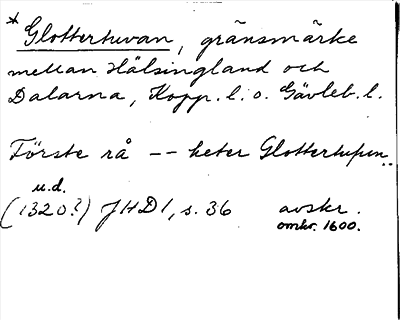 * Glottertuvan, gränsmärke
mellan Hälsingland och
Dalarna, Kopp. l. o. Gävleb. l.
Förste rå -- heter Glottertufvun..
u.d.
(1320?) JHD 1, s. 36 avskr.
omkr. 1600.